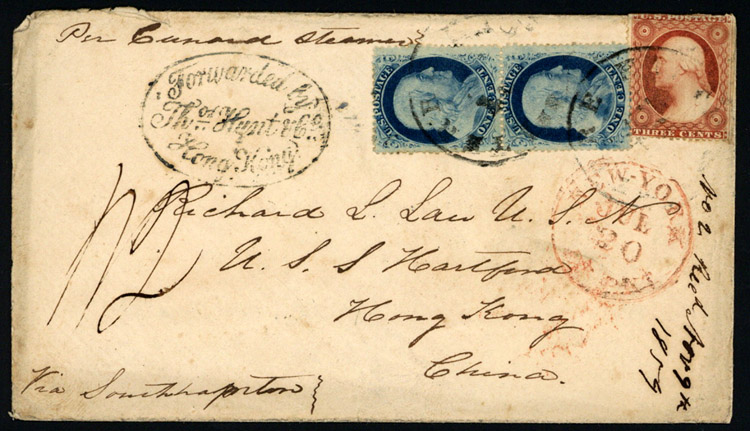 Per Cunard Steamer
Forwarded by
Thos Hunt & Co
Hong Kong
U.S. POSTAGE
ONE CENT
U.S. POSTAGE
ONE CENT
U.S. POSTAGE
THREE CENTS
NEW-YORK
JUL
20
Richard L. Law U. S. N.
U. S. S Hartford
Hong Kong
China.
Via Southhampton
No 2 Recd Nov 9th
1859